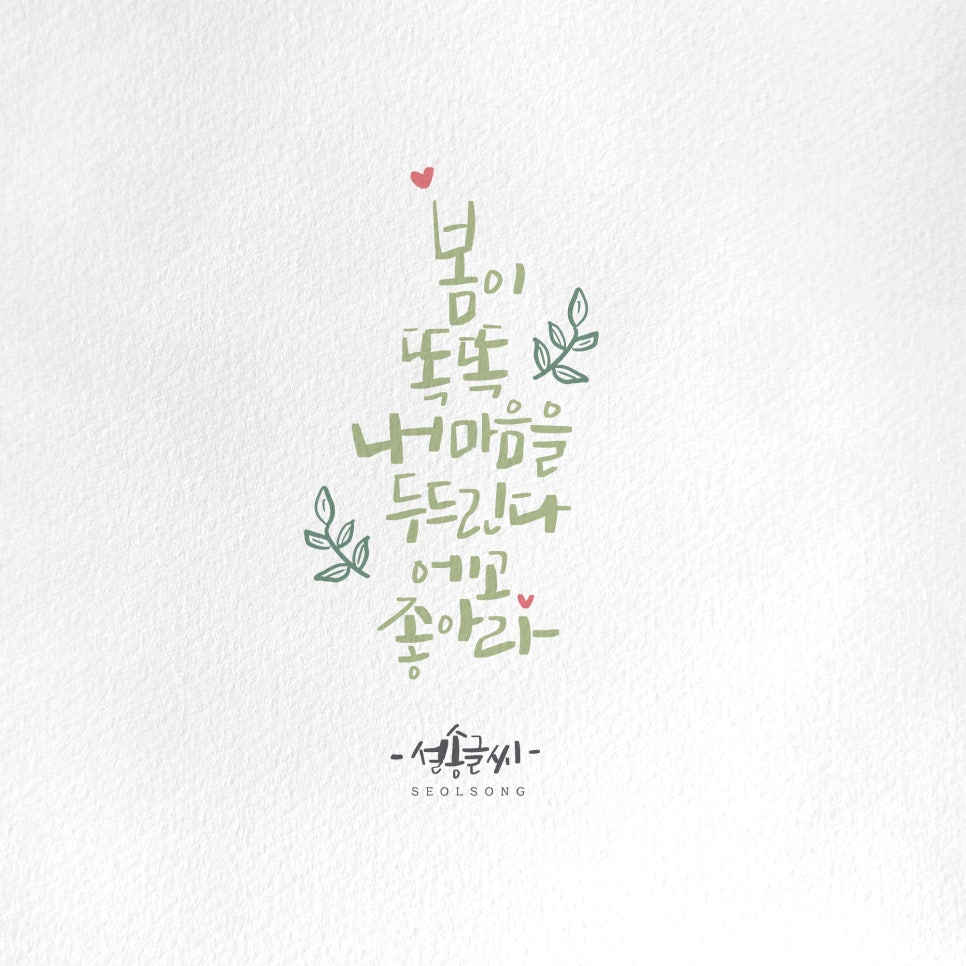 봄이
똑똑
내 마음을
두드린다
에고
좋아라
- 설송글씨 -
SEOLSONG